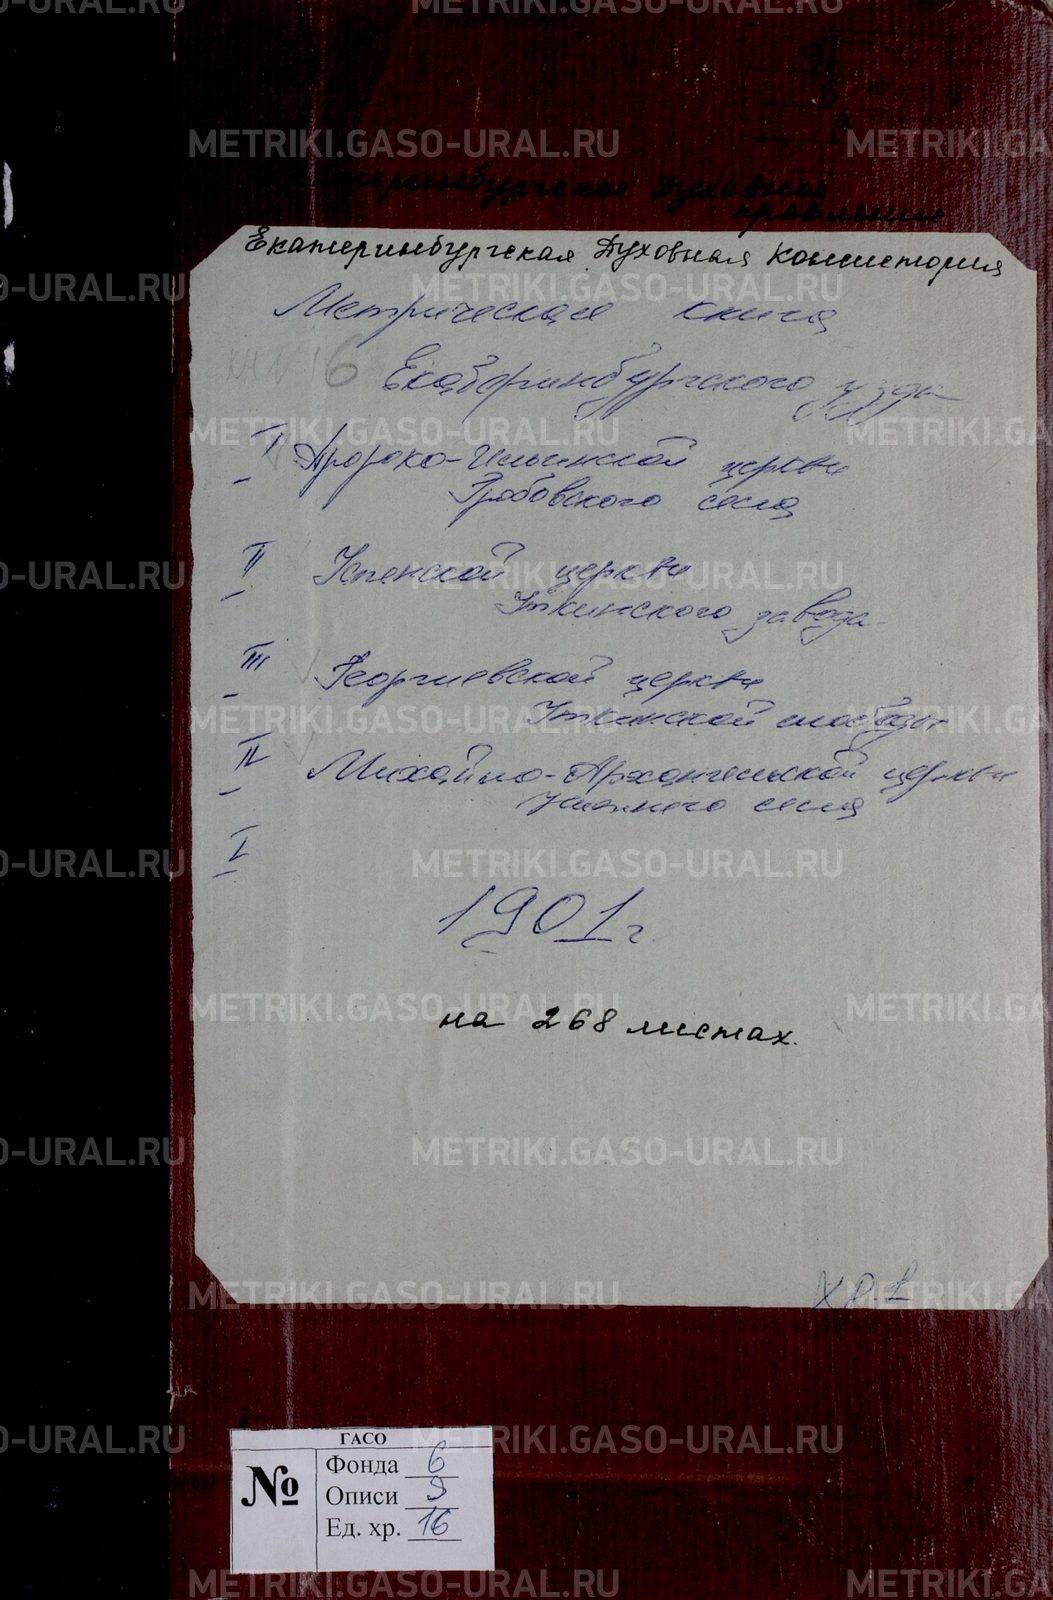 Екатеринбургское Духовное
правление
Екатеринбургская Духовная Консистория
Метрическая книга
16
Екатеринбургского уезда
I Пророко-Ильинской церкви
Грабовского села
II Успенской церкви
Уткинского завода
III Георгиевской церкви
Уткинской слободы
IV Михайло-Архангельской церкви
села
V
1901 г.
на 268 листах.
ГАСО
№
Фонда 6
Описи 9
Ед. хр. 16
METRIKI.GASO-URAL.RU